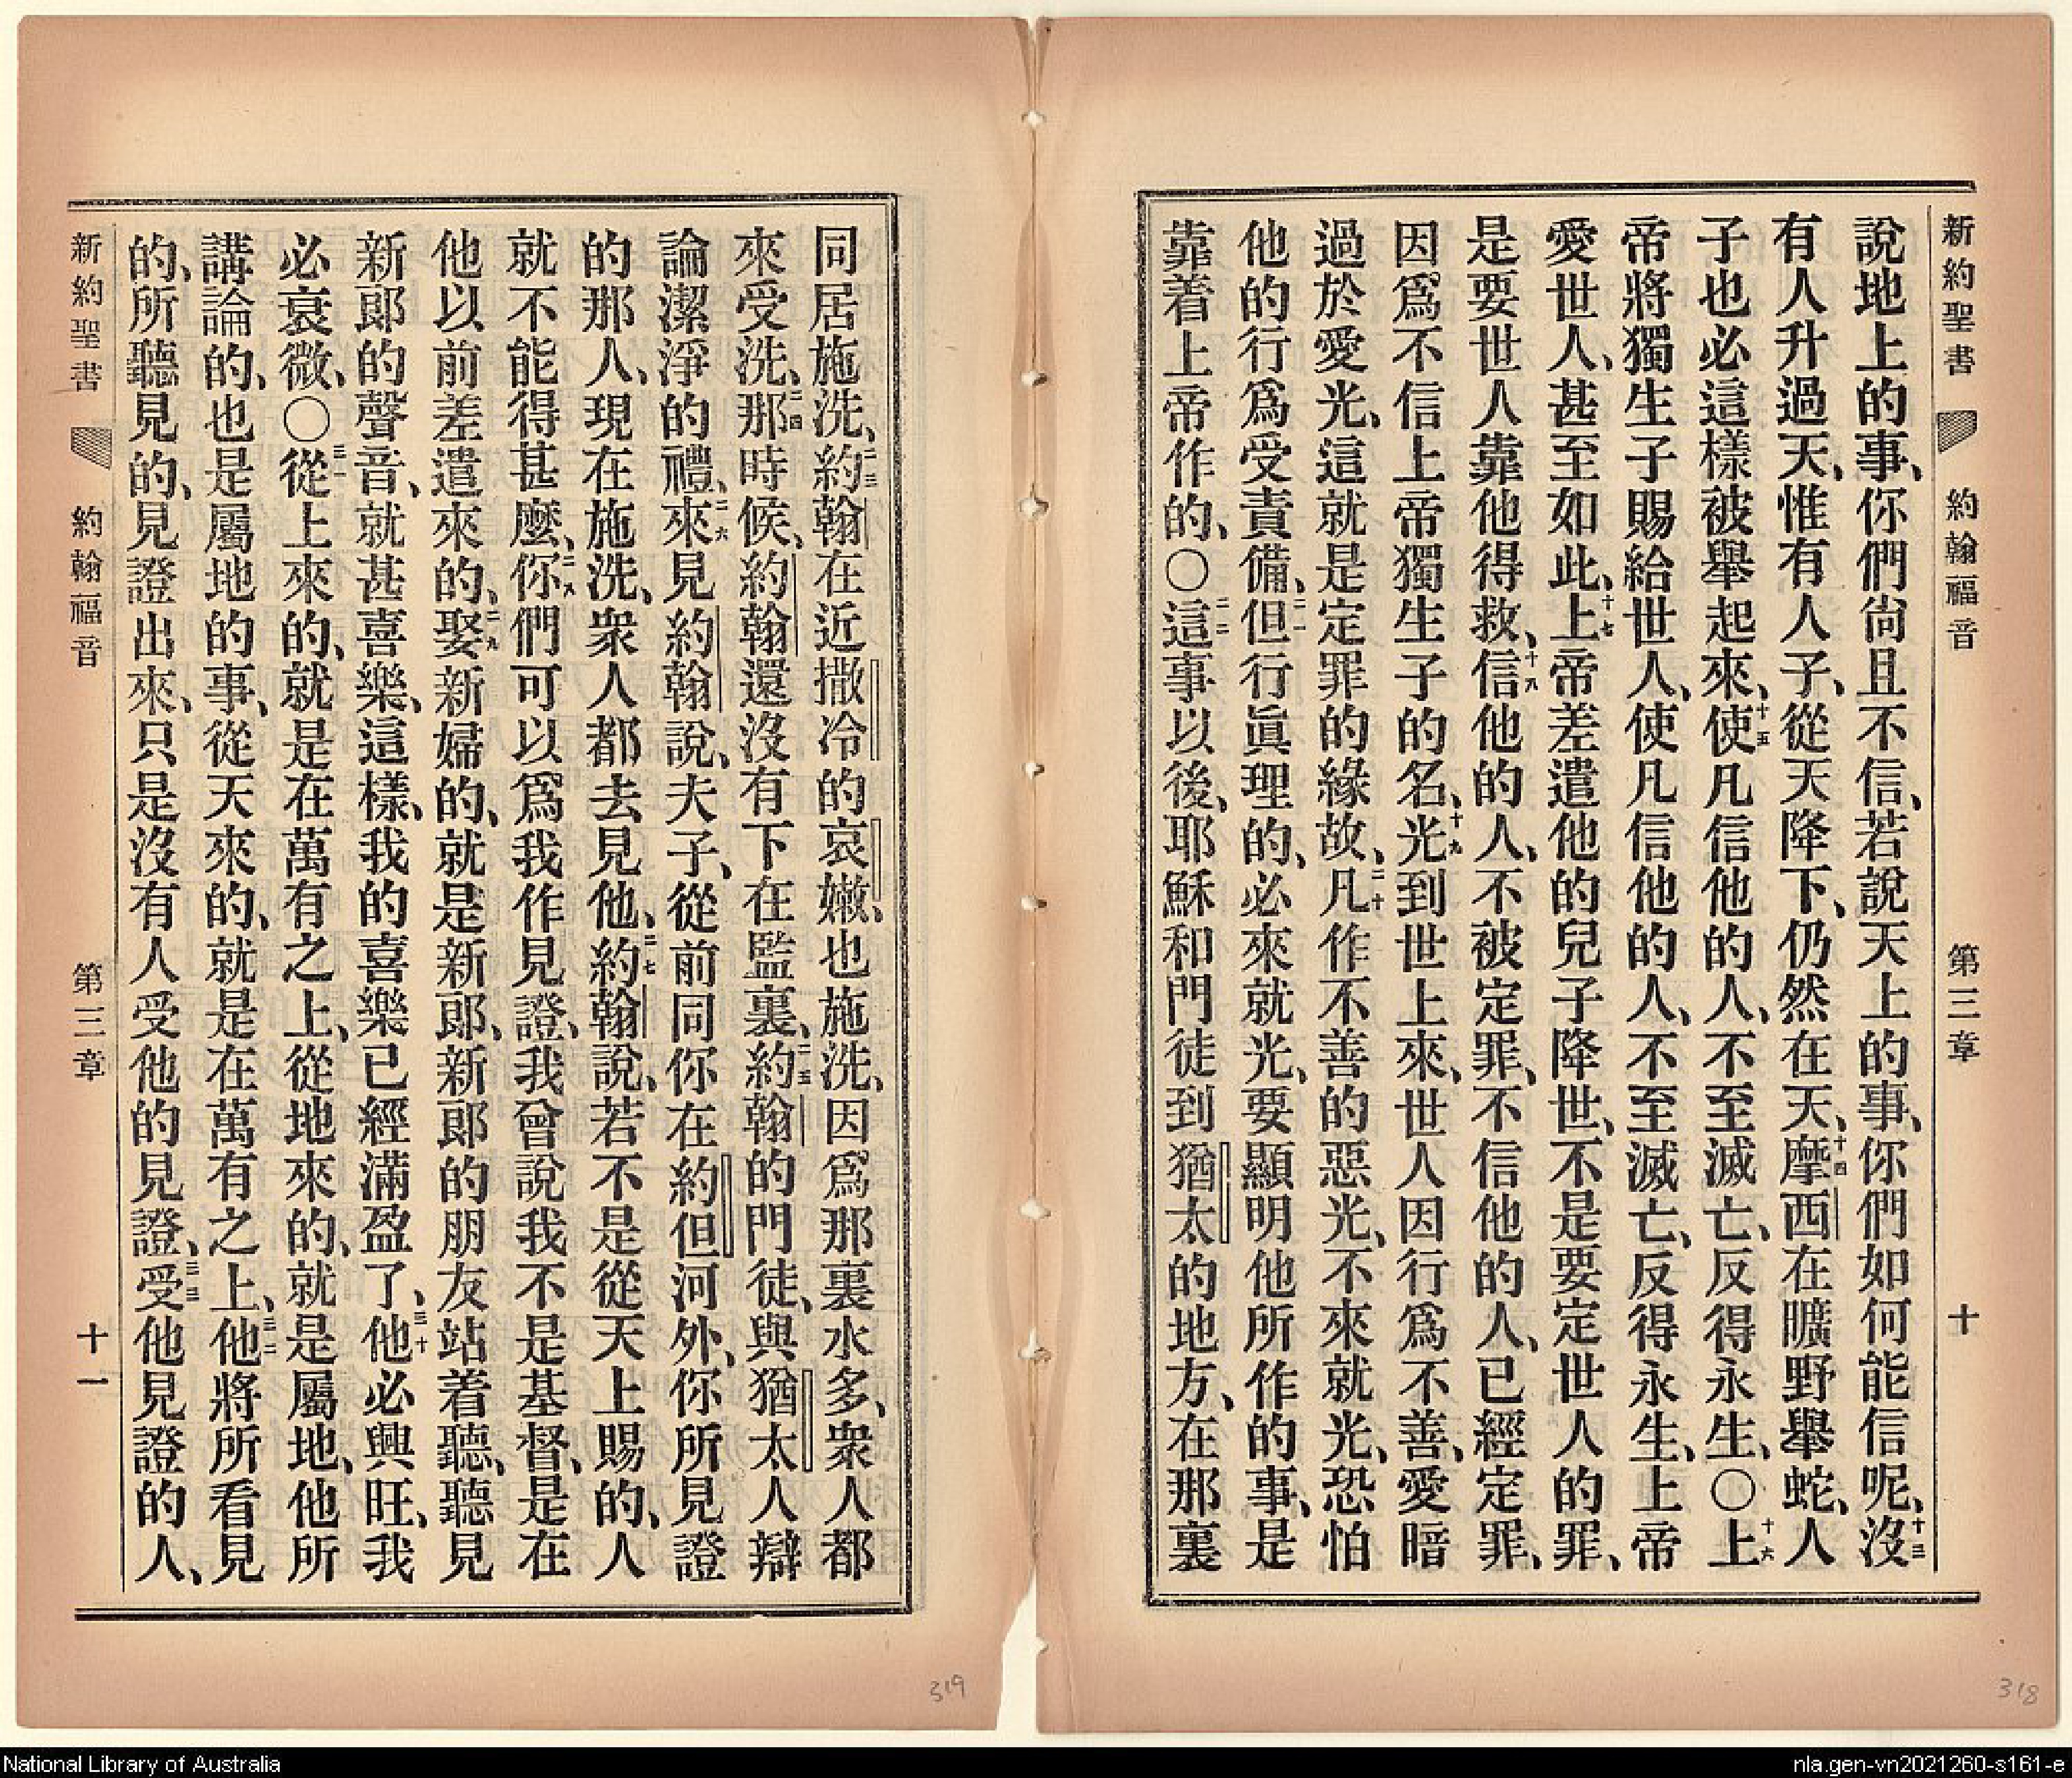 新約聖書 約翰福音 第三章 十
說地上的事、你們尙且不信、若說天上的事、你們如何能信呢、十三沒
有人升過天、惟有人子、從天降下、仍然在天、十四摩西在曠野舉蛇、人
子也必這樣被舉起來、十五使凡信他的人、不至滅亡、反得永生、〇十六上
帝將獨生子賜給世人、使凡信他的人、不至滅亡、反得永生、上帝
愛世人、甚至如此、十七上帝差遣他的兒子降世、不是要定世人的罪、
是要世人靠他得救、十八信他的人、不被定罪、不信他的人、已經定罪、
因爲不信上帝獨生子的名、十九光到世上來、世人因行爲不善、愛暗
過於愛光、這就是定罪的緣故、二十凡作不善的惡光、不來就光、恐怕
他的行爲受責備、二一但行眞理的、必來就光、要顯明他所作的事、是
靠着上帝作的、〇二二這事以後、耶穌和門徒到猶太的地方、在那裏
同居施洗、二三約翰在近撒冷的哀嫩、也施洗、因爲那裏水多、衆人都
來受洗、二四那時候、約翰還沒有下在監裏、二五約翰的門徒、與猶太人辯
論潔淨的禮、二六來見約翰說、夫子、從前同你在約但河外、你所見證
的那人、現在施洗、衆人都去見他、二七約翰說、若不是從天上賜的、人
就不能得甚麼、二八你們可以爲我作見證、我曾說我不是基督、是在
他以前差遣來的、二九娶新婦的、就是新郎、新郎的朋友站着聽、聽見
新郎的聲音、就甚喜樂、這樣、我的喜樂已經滿盈了、三十他必興旺、我
必衰微、〇三一從上來的、就是在萬有之上、從地來的、就是屬地、他所
講論的、也是屬地的事、從天來的、就是在萬有之上、三二他將所看見
的、所聽見的、見證出來、只是沒有人受他的見證、三三受他見證的人、
新約聖書 約翰福音 第三章 十一
319
318
National Library of Australia
nla.gen-vn2021260-s161-e